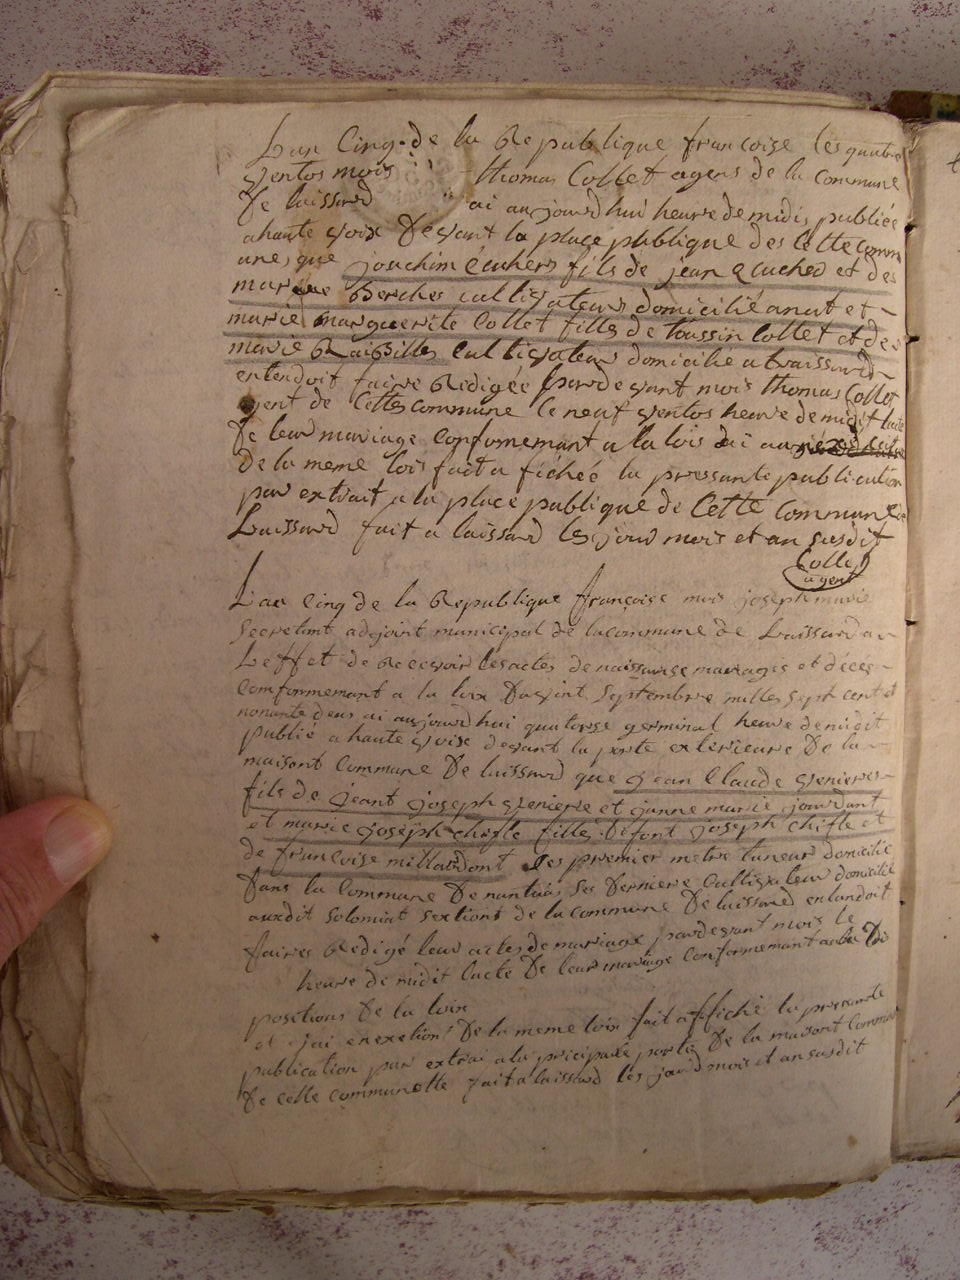 Lan Cinq de la Republique francoise les quatre
ventos mois thomas Collet agens de la Commune
De laissard ai aujourdhui heure de midis publiée
ahaute voix Devant la place publique des Cette comm
une, que jouchim écuhers fils de jean ecucher et des
marque Berches cultivateurs domicilié anut et
marie marguerite Collet filles de toussin Collet et des
marie cultivateur domicilie a braissard
entendoit faire Redigée pardevant mois thomas Collot
agent de Cettes commune Ce neuf ventos heure de midit lacte
De leur mariage Conformemant a la lois dai au
de la meme lois fait a fichéé la pressante publication
par extrait a la place publique de Cette Commune de
Laissard fait a laissard les jour mois et an susdit
Collet
agent
Lan Cinq de la Republique françoise mois joseph marie
Secretent adejoint municipal de lacommune de Laissard a
Leffet de Recevoir les actes de naissansse mariages et décés
Conformemant a la loix Duvint Septembre milles Sept cent et
nonante deus ai aujourdhui quatorse germinal heure demidit
publié a haute voise devant la porte exterieure De la
maisont Commune De laissard que jean Claude venieres
fils de jeant joseph veniere et janne marie jourdant
et marie joseph chifle filles Defont joseph chifle et
de francoise millardont les premier metre taneur domicilie
Dans la Commune De nantuas Ses Derniere Cultivateur domicilié
audit solomiat sextions de la Commune De laissard entandoit
faires Redigé leur actes de mariage pardevant mois le
heure de midit lacte De leur mariage Conformemant aubs Di
positions De la loix
et jai enexetion De la meme loix fait affiché la presente
publication par extrai ala pricipale portes De la maisont Commun
De cette communette fait a laissard les jourd mois et an susdit